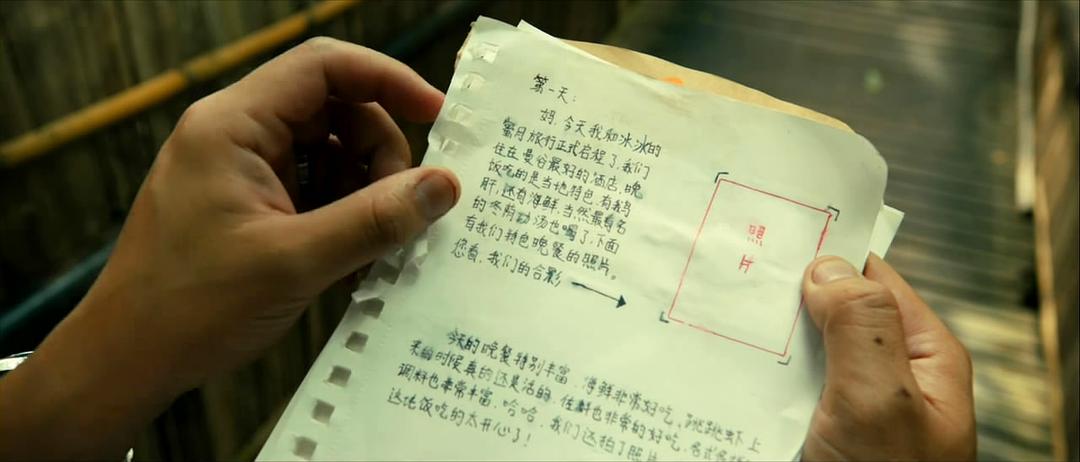 第一天：
妈，今天我和冰冰的
蜜月旅行正式启程了，我们
住在曼谷最好的酒店，晚
饭吃的是当地特色，有鹅
肝，还有海鲜，当然最有名
的冬荫功汤也喝了，下面
有我们特色晚餐的照片。
您看，我们的合影
照
片
今天的晚餐特别丰富，海鲜非常好吃，跳跳虾上
来的时候真的还是活的，佐料也非常的好吃，各式各样
调料也非常丰富，哈哈，我们还拍了照片
这地饭吃的太开心了！